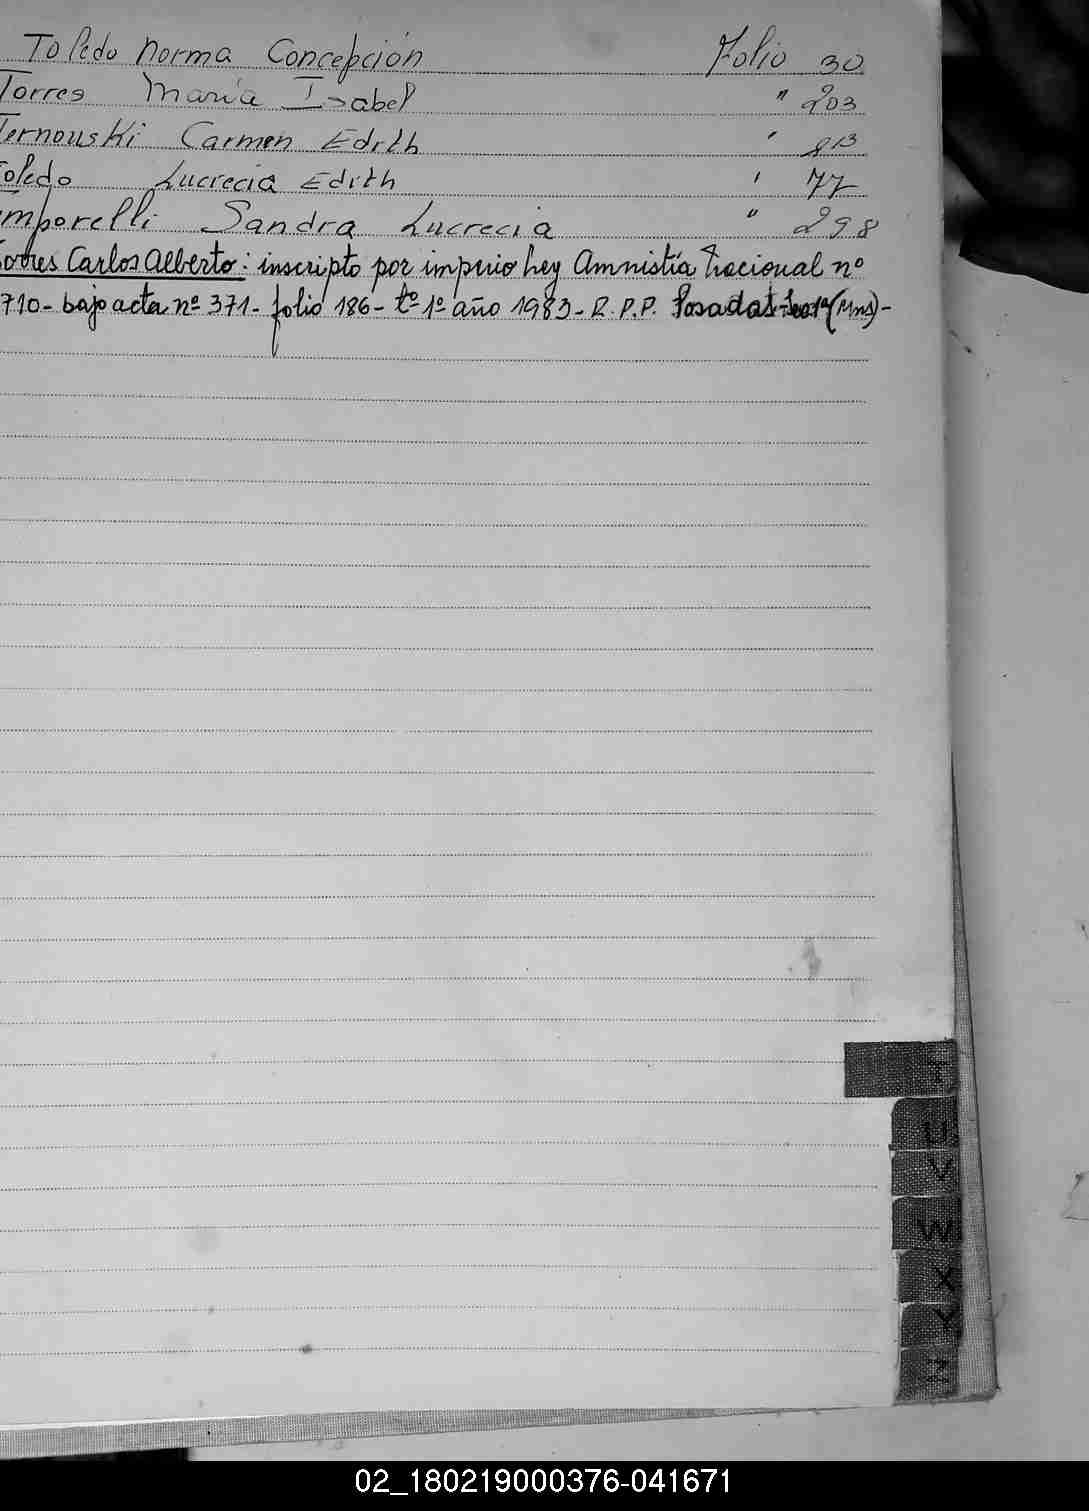 Toledo Norma Concepción Folio 30
Torres María Isabel " 203
Ternouski Carmen Edith " 213
Toledo Lucrecia Edith " 77
mporelli Sandra Lucrecia " 298
Torres Carlos Alberto: inscripto por imperio ley Amnistía Nacional nº
710- bajo acta nº 371- folio 186- tº 1º año 1983- R.P.P. Posadas (Mns)-
T
U
V
W
X
Y
Z
02_180219000376-041671